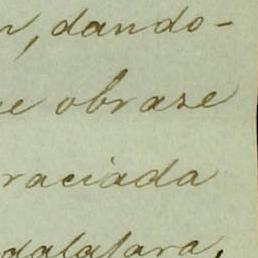 n, dando-
e obrase
raciada
dalajara,